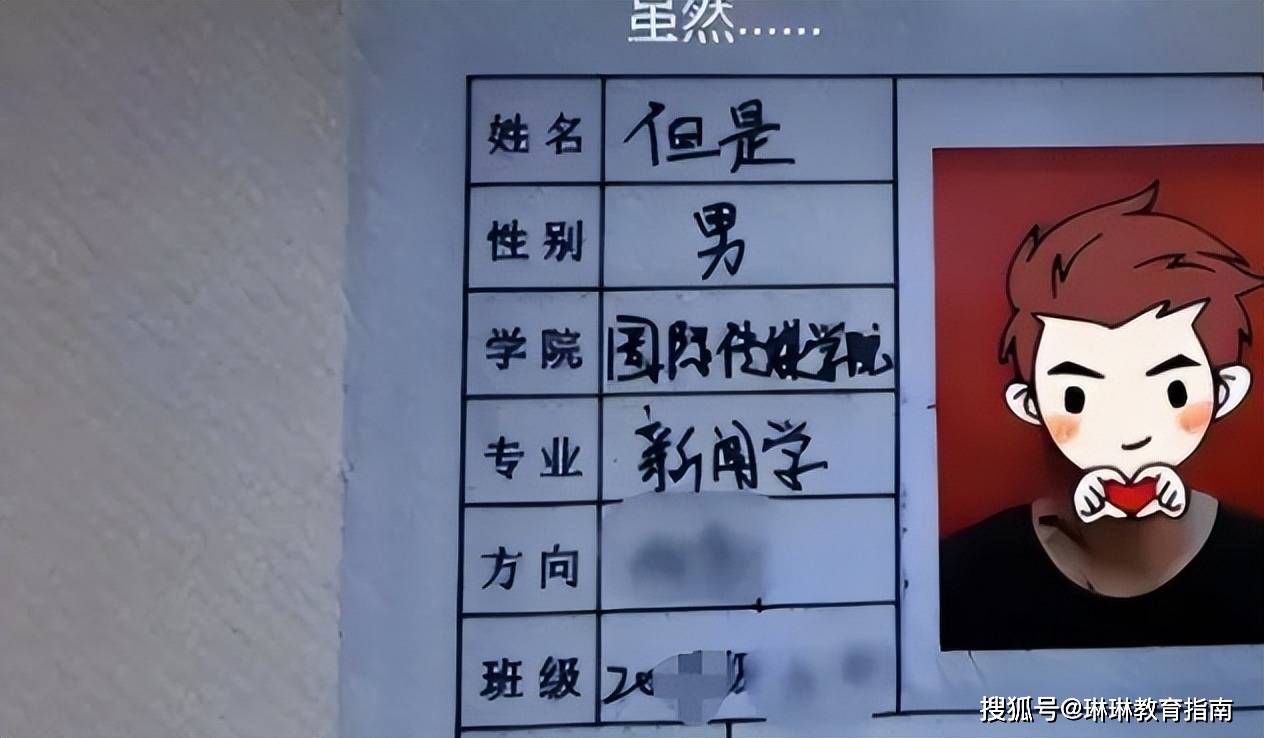 虽然......
姓名 但是
性别 男
学院 国际传媒学院
专业 新闻学
方向
班级 20
搜狐号@琳琳教育指南